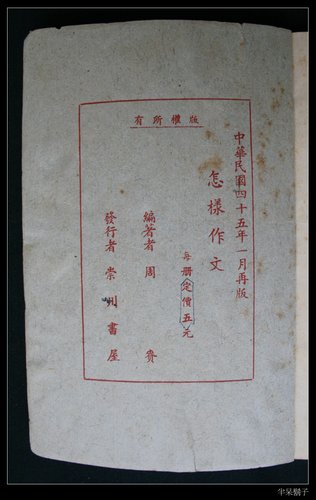 版權所有
中華民國四十五年一月再版
怎樣作文
每册定價五元
編著者 周 賁
發行者 崇州書屋
半呆鬍子